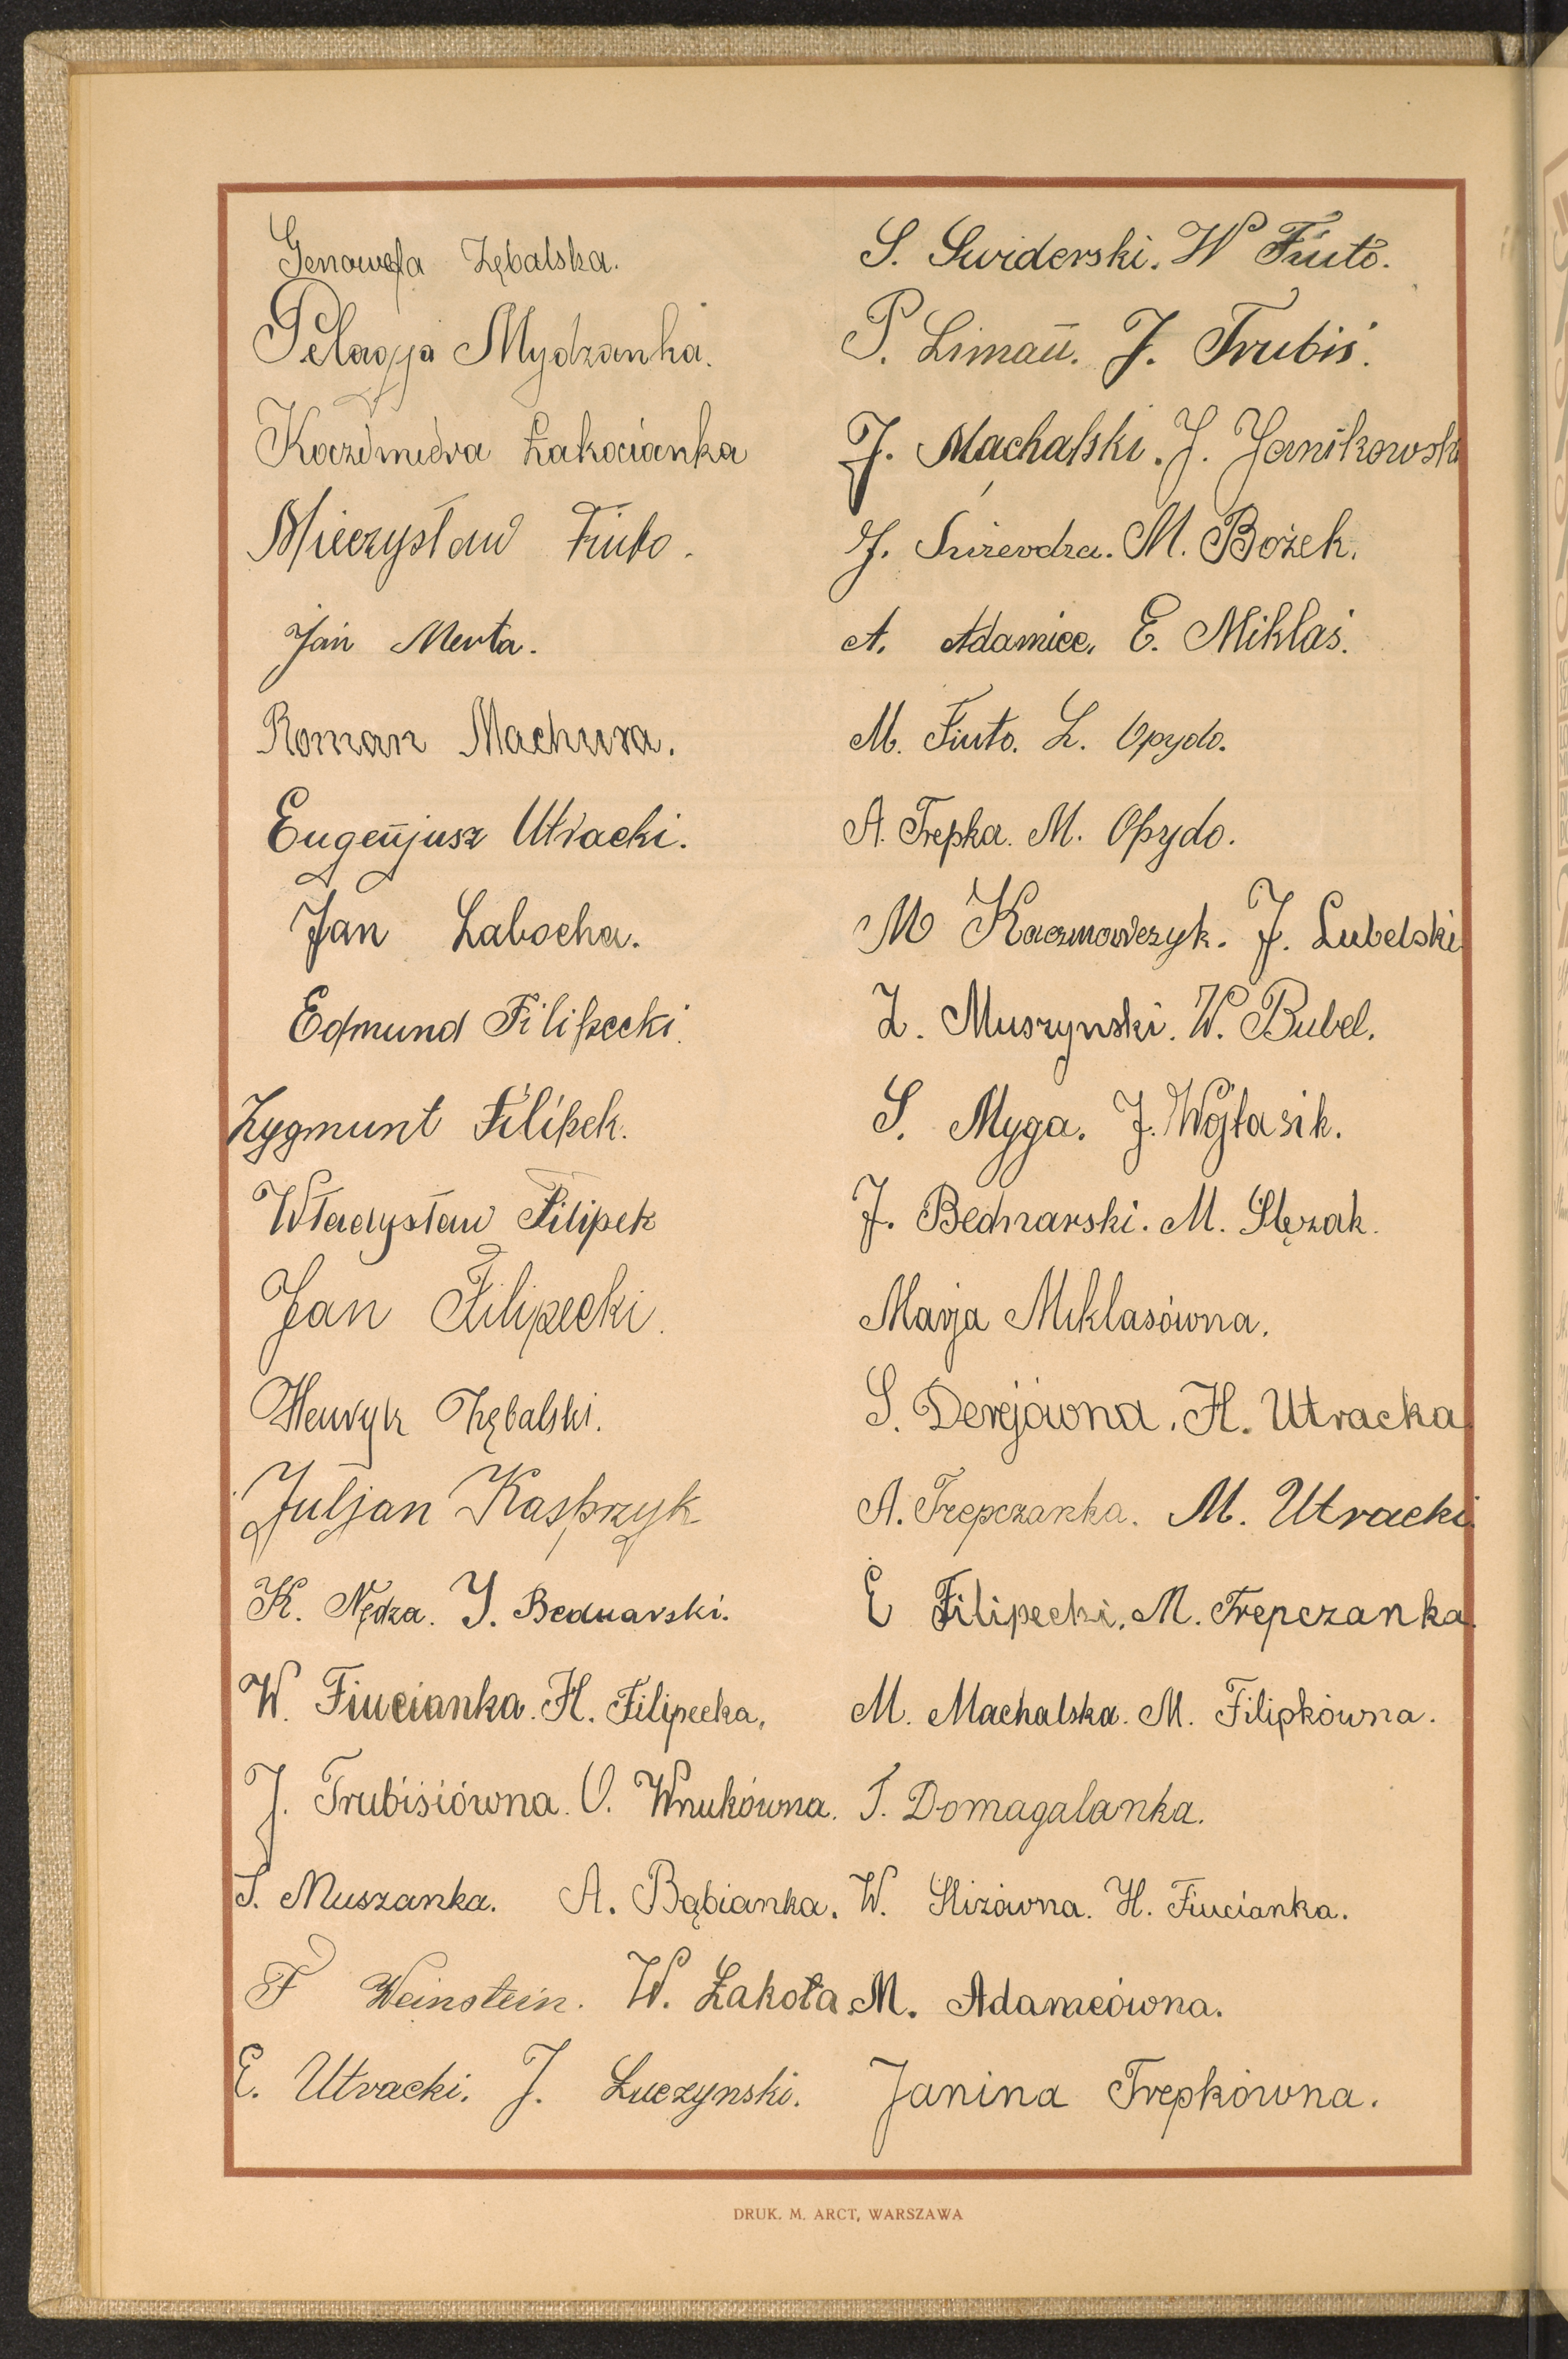 Genowefa Zębalska.
Pelagja Mydzanka.
Kazimiera Łakocianka
Mieczysław Fiuto.
Jan Merta.
Roman Machura.
Eugenjusz Utracki.
Jan Labocha.
Edmund Filipecki.
Zygmunt Filipek.
Władysław Filipek
Jan Filipecki.
Henryk Zębalski.
Juljan Kasprzyk
K. Nędza. J. Bednarski.
W. Fiucianka. H. Filipecka.
J. Trubisiówna. O. Wnukówna.
S. Muszanka. A. Bąbianka.
F Weinstein. W. Łakota
E. Utracki. J. Łuczynski.
S. Swiderski. W Fiuto.
P. Liman. J. Trubis.
J. Machalski. J. Janikowski
J. M. Bożek.
A. Adamiec. E. Miklaś.
M. Fiuto. L. Opydo.
A. Trepka. M. Opydo.
M Kaczmarczyk. J. Lubelski
Z. Muszynski. W. Bubel.
S. Myga. J. Wójtasik.
J. Bednarski. M. Ślęzak.
Marja Miklasówna.
S. Derejówna. H. Utracka
A. Trepczanka. M. Utracki.
E Filipecki. M. Trepczanka.
M. Machalska. M. Filipkówna.
T. Domagalanka.
W. Slizówna. H. Fiucianka.
M. Adamcówna.
Janina Trepkówna.
DRUK. M. ARCT, WARSZAWA